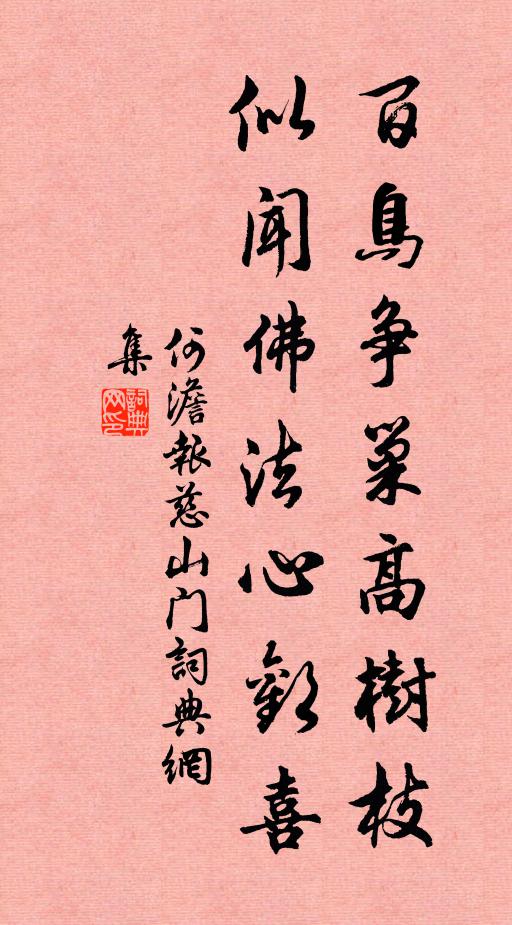 百鳥争巢高樹枝
似闻佛法心歡喜
何澹報慈山门詞典網
集
詞典网印